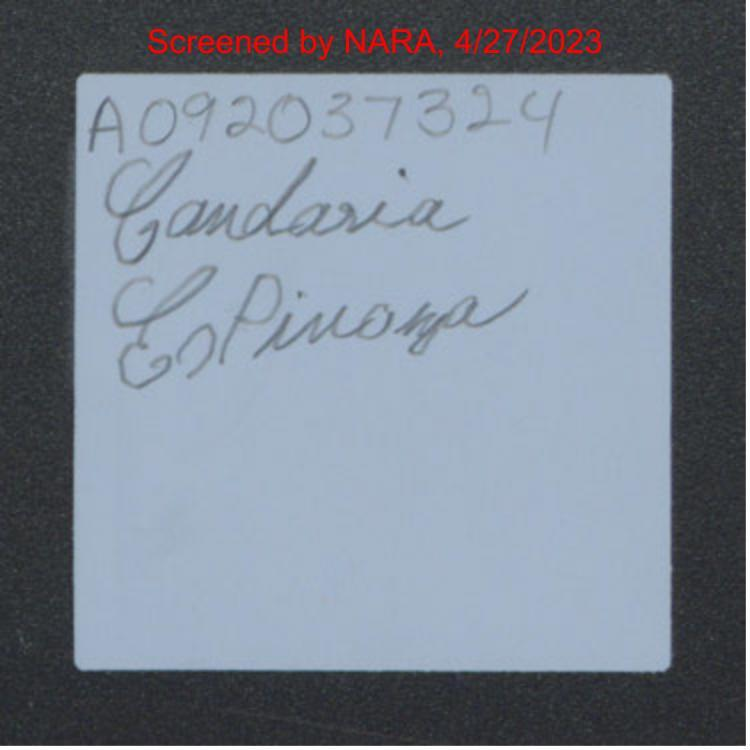 Screened by NARA, 4/27/2023
A092037324
Candaria
EsPinoza